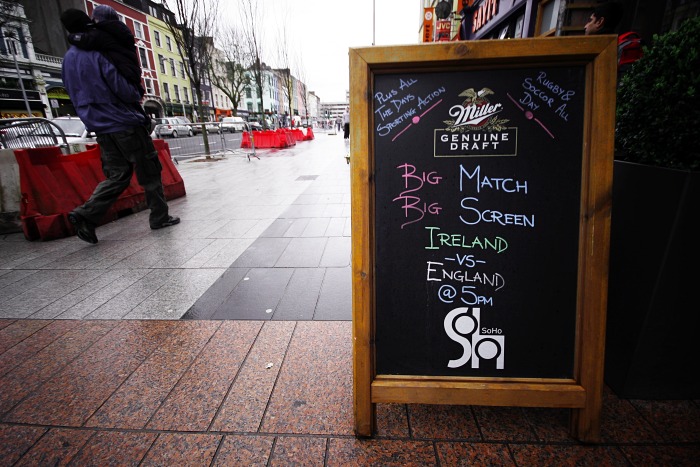 Plus All
The Days
Sporting Action
Rugby &
Soccor All
Day
Miller
GENUINE
DRAFT
Big Match
Big Screen
Ireland
-vs-
England
@ 5pm
SoHo